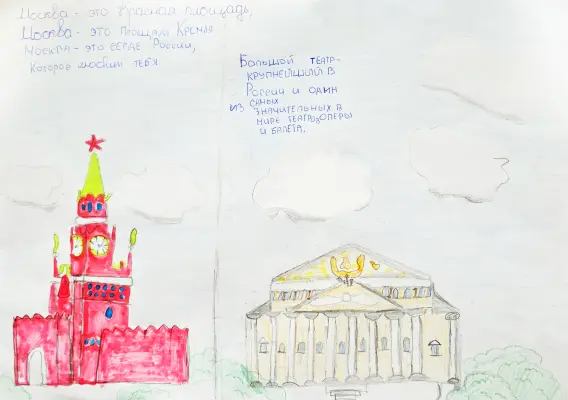 Москва - это Красная площадь,
Москва - это площади Кремля
Москва - это сердце России,
Которое любит тебя
Большой театр-
крупнейший в
России и один
из самых
значительных в
мире театров оперы
и балета.